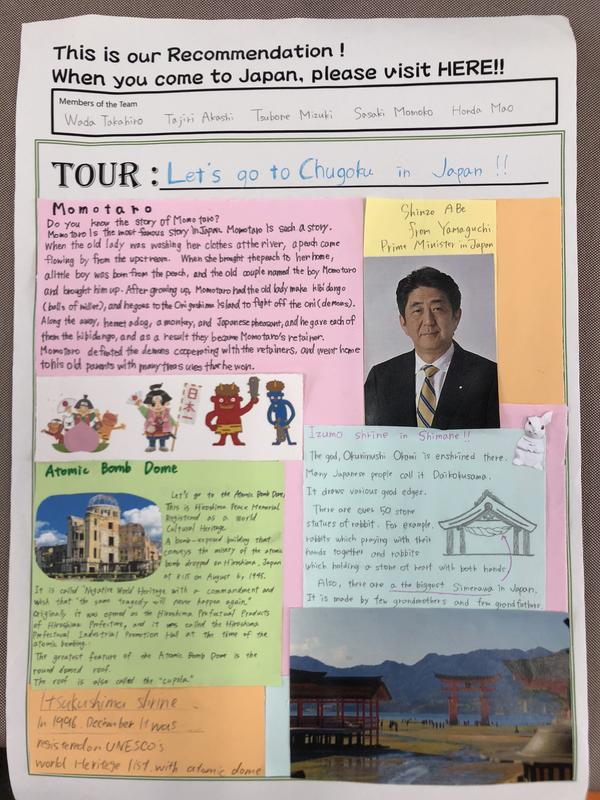 This is our Recommendation !
When you come to Japan, please visit HERE!!
Members of the Team
Wada Takahiro Tajiri Akashi Tsubone Mizuki Sasaki Momoko Honda Mao
TOUR : Let's go to Chugoku in Japan !!
Momotaro
Do you know the story of Momotaro?
Momotaro Is the most famous story in Japan. Momotaro Is such a story.
When the old lady was washing her clothes at the river, a peach came
flowing by from the upstream. When she brought the peach to her home,
a little boy was born from the peach, and the old couple named the boy Momotaro
and brought him up. After growing up, Momotaro had the old lady make kibi dango
(balls of millet), and he goes to the Onigashima Island to fight off the oni (demons).
Along the away, he met a dog, a monkey, and Japanese pheasant, and he gave each of
them the kibidango, and as a result they became Momotaro's retainer.
Momotaro defeated the demons cooperating with the retainers, and went home
to his old parents with many that he won.
日本一
Shinzo Abe
from Yamaguchi
Prime Minister in Japan
Izumo shrine in Shimane!!
The god, Okuninushi Okami is enshrined there.
Many Japanese people call it Daikokusama.
It draws various good edges.
There are over 50 stone
statues of rabbit. For example,
rabbits which praying with their
hands together and rabbits
which holding a stone of heart with both hands
Also, there are a the biggest Simenawa in Japan.
It is made by few grandmothers and few grandfather.
Atomic Bomb Dome
Let's go to the Atomic Bomb Dome,
This is Hiroshima Peace Memorial
Registered as a World
Cultural Heritage.
A bomb-exposed building that
conveys the misery of the atomic
bomb dropped on Hiroshima, Japan
at 8:15 on August 6, 1945.
It is called "Negative World Heritage with a commandment and
wish that "the same tragedy will never happen again."
Originally it was opened as the Hiroshima Prefectual Products
of Hiroshima Prefecture, and it was called the Hiroshima
Prefectual Industrial Promotion Hall at the time of the
atomic bombing.
The greatest feature of the Atomic Bomb Dome is the
round domed roof.
The roof is also called the "cupola"
Itsukushima shrine
In 1996. December It was
registered on UNESCO's
world Heritage list with atomic dome